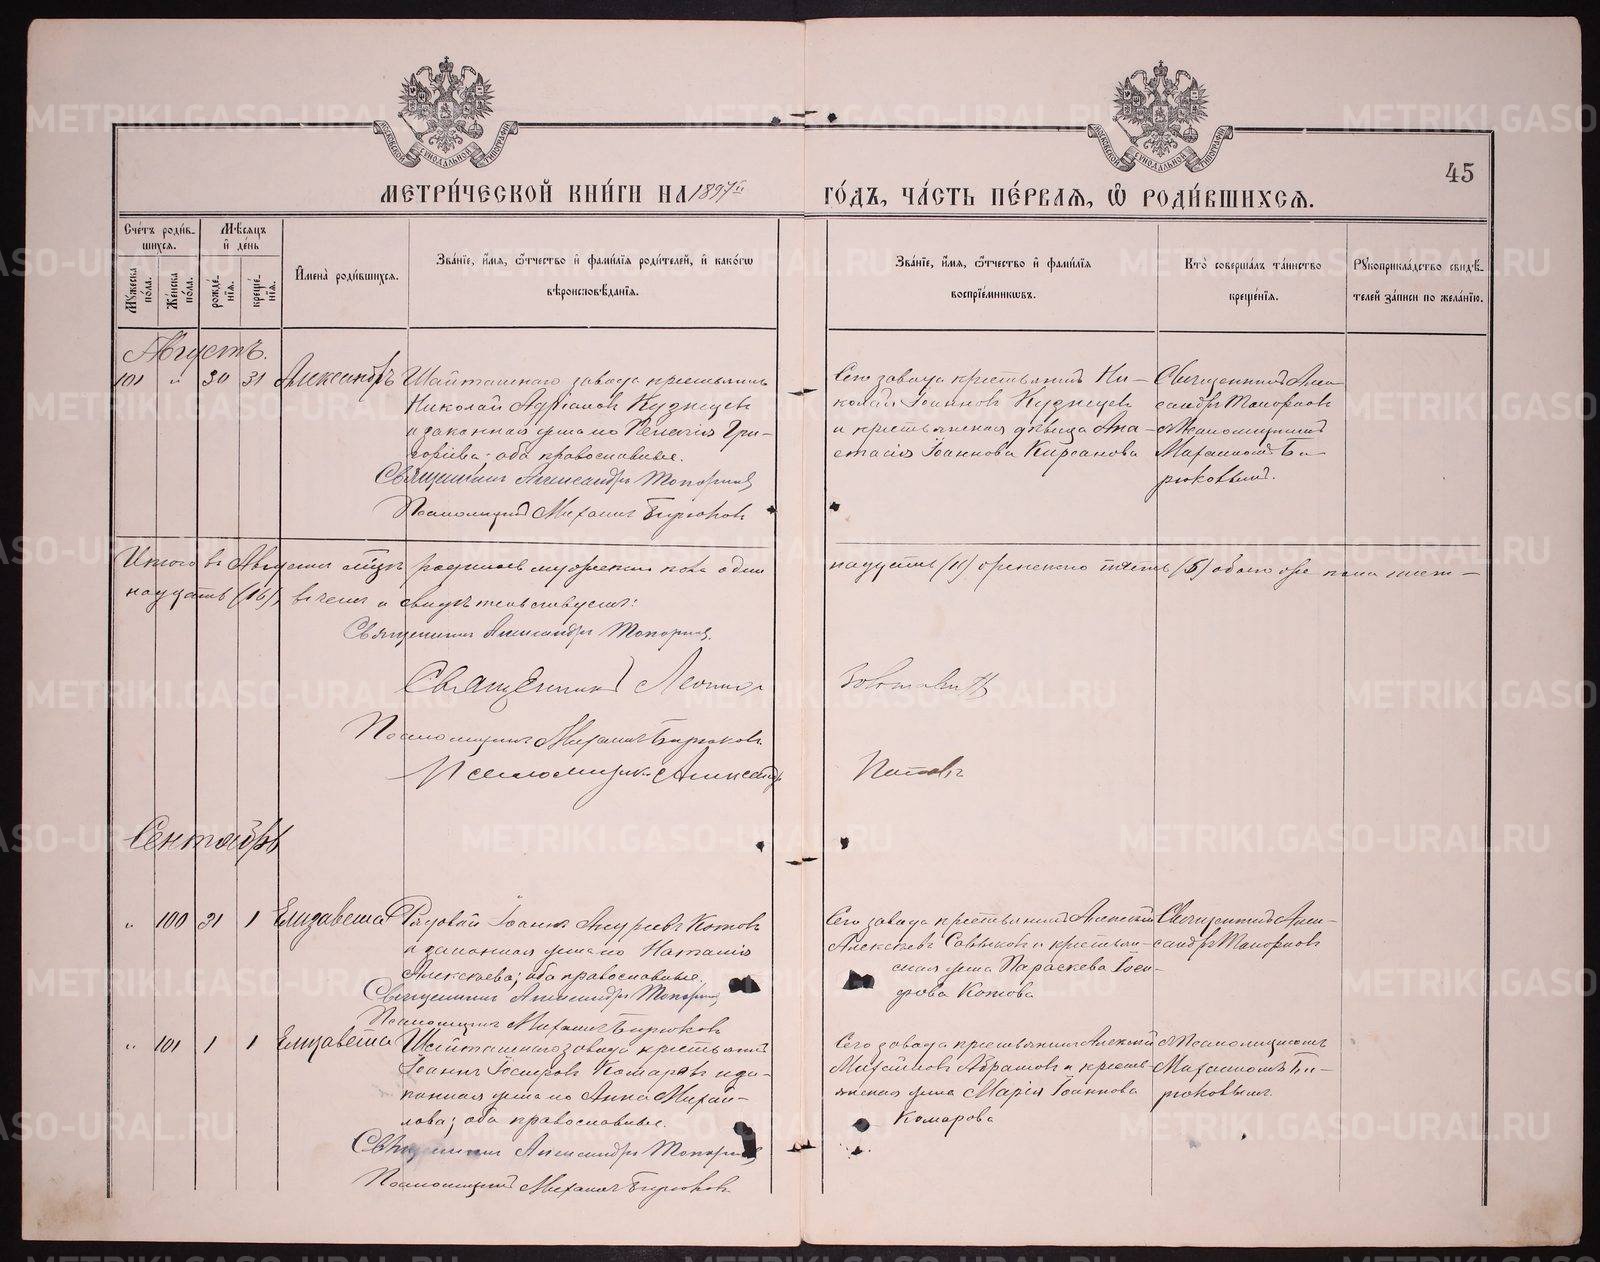 МЕТРИ́ЧЕСКОЙ КНИ́ГИ НА 1897й ГО́ДЪ, ЧА́СТЬ ПЕ́РВАЯ, Ѡ РОДИ́ВШИХСЯ.
45
МОСКОВСКОЙ СѴНОДАЛЬНОЙ ТИПОГРАФІИ
МОСКОВСКОЙ СѴНОДАЛЬНОЙ ТИПОГРАФІИ
Сче́тъ роди́вшихся.
Му́жеска по́ла.
Же́нска по́ла.
Мѣ́сяцъ и де́нь
рожде́нія.
креще́нія.
Имена̀ роди́вшихся.
Зва́ніе, и́мя, ѻ́тчество и фами́лія роди́телей, и како́гѡ
вѣроисповѣ́данія.
Зва́ніе, и́мя, ѻ́тчество и фами́лія
воспріе́мникѡвъ.
Кто̀ соверша́лъ та́инство
креще́нія.
Рꙋкоприкла́дство свидѣ́-
телей за́писи по жела́нію.
Августъ.
101 " 30 31 Александръ
Шайташнаго завода крестьянинъ
Николай Адріановъ Кузнецовъ
и законная жена его Григо-
рьева; оба православные.
Священникъ Александръ Топорковъ
Псаломщикъ Михаилъ Бирюковъ
Сего завода крестьянинъ Ни-
колай Іоанновъ Кузнецовъ
и крестьянская дѣвица Ана-
стасія Іоаннова Кирсанова
Священникъ Алек-
сандръ Топорковъ
съ Псаломщикомъ
Михаиломъ Би-
рюковымъ.
Итого въ Августѣ мѣсяцѣ родилось мужеска пола один-
надцать (11) женскаго пять (5) обоего же пола шест-
надцать (16), въ чемъ и свидѣтельствуемъ:
Священникъ Александръ Топорковъ.
Священникъ Леонидъ
Псаломщикъ Михаилъ Бирюковъ.
Псаломщикъ Александръ Поповъ
Сентябрь
" 100 31 1 Елизавета
Рядовой Іоаннъ Андреевъ Котовъ
и законная жена его Наталія
Алексѣева; оба православные.
Священникъ Александръ Топорковъ
Псаломщикъ Михаилъ Бирюковъ
Сего завода крестьянинъ Алексѣй
Алексѣевъ Савинковъ и крестьян-
ская жена Параскева Іоси-
фова Котова
Священникъ Алек-
сандръ Топорковъ
" 101 1 1 Елизавета
Шайташнаго завода крестьянинъ
Іоаннъ Іосифовъ Комаровъ и за-
конная жена его Анна Михай-
лова; оба православные.
Священникъ Александръ Топорковъ
Псаломщикъ Михаилъ Бирюковъ.
Сего завода крестьянинъ Алексѣй
Михайловъ Абрамовъ и кресть-
янская жена Марія Іоаннова
Комарова
съ Псаломщикомъ
Михаиломъ Би-
рюковымъ.
METRIKI.GASO-URAL.RU